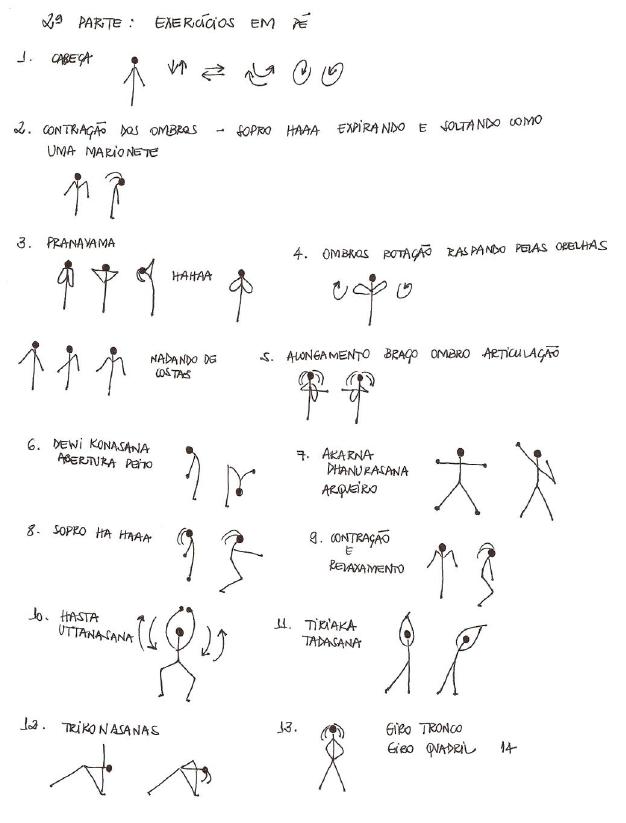 2ª PARTE: EXERCÍCIOS EM PÉ
1. CABEÇA
2. CONTRAÇÃO DOS OMBROS - SOPRO HAAA EXPIRANDO E SOLTANDO COMO
UMA MARIONETE
3. PRANAYAMA
HAHAA
4. OMBROS ROTAÇÃO RASPANDO PELAS ORELHAS
NADANDO DE
COSTAS
5. ALONGAMENTO BRAÇO OMBRO ARTICULAÇÃO
6. DEWI KONASANA
ABERTURA PEITO
7. AKARNA
DHANURASANA
ARQUEIRO
8. SOPRO HA HAAA
9. CONTRAÇÃO
E
RELAXAMENTO
10. HASTA
UTTANASANA
11. TIRIAKA
TADASANA
12. TRIKONASANAS
13. GIRO TRONCO
GIRO QUADRIL 14